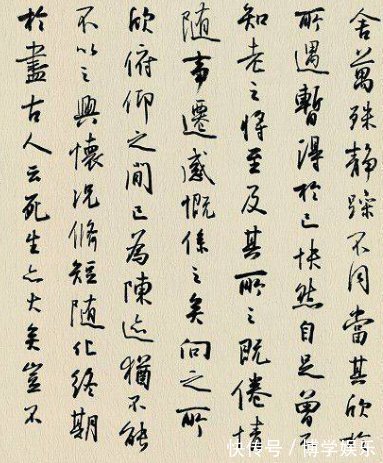 舍萬殊静躁不同當其欣於
所遇暫得於己快然自足曾不
知老之將至及其所之既倦情
隨事遷感慨係之矣向之所
欣俯仰之間已為陳迹猶不能
不以之興懷況脩短隨化終期
於盡古人云死生亦大矣豈不
快传号 / 博学娱乐